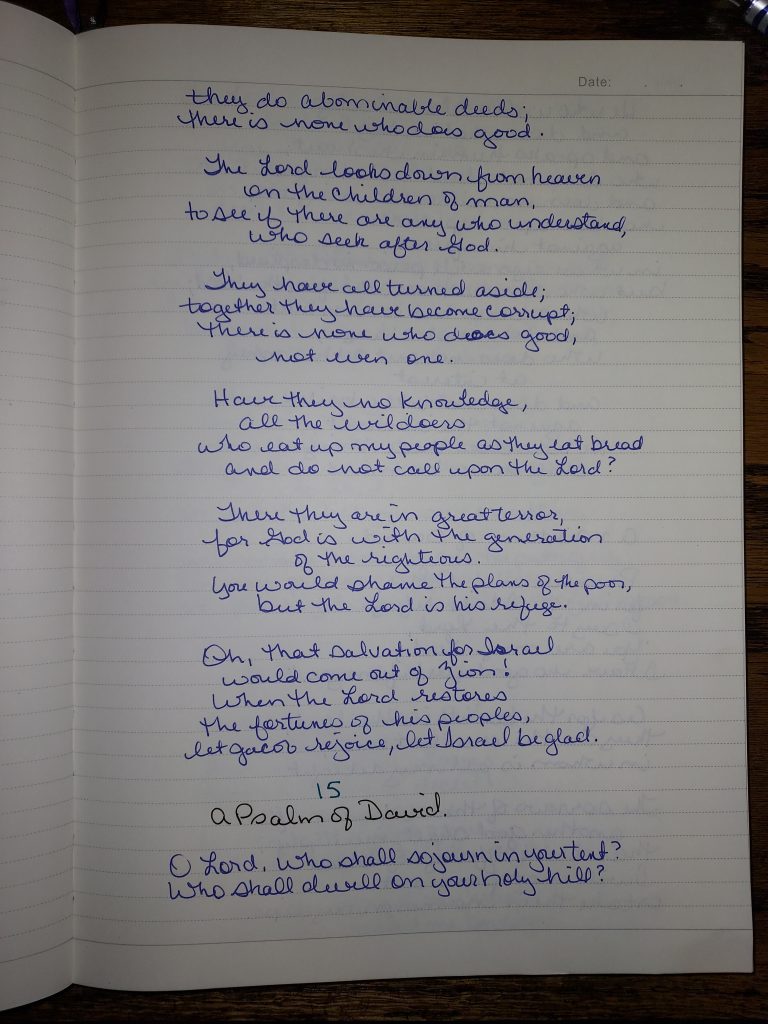 Date:
they do abominable deeds;
there is none who does good.
The Lord looks down from heaven
on the children of man,
to see if there are any who understand,
who seek after God.
They have all turned aside;
together they have become corrupt;
there is none who does good,
not even one.
Have they no knowledge,
all the evildoers
who eat up my people as they eat bread
and do not call upon the Lord?
There they are in great terror,
for God is with the generation
of the righteous.
You would shame the plans of the poor,
but the Lord is his refuge.
Oh, that salvation for Israel
would come out of Zion!
When the Lord restores
the fortunes of his peoples,
let Jacob rejoice, let Israel be glad.
15
A Psalm of David.
O Lord, who shall sojourn in your tent?
Who shall dwell on your holy hill?